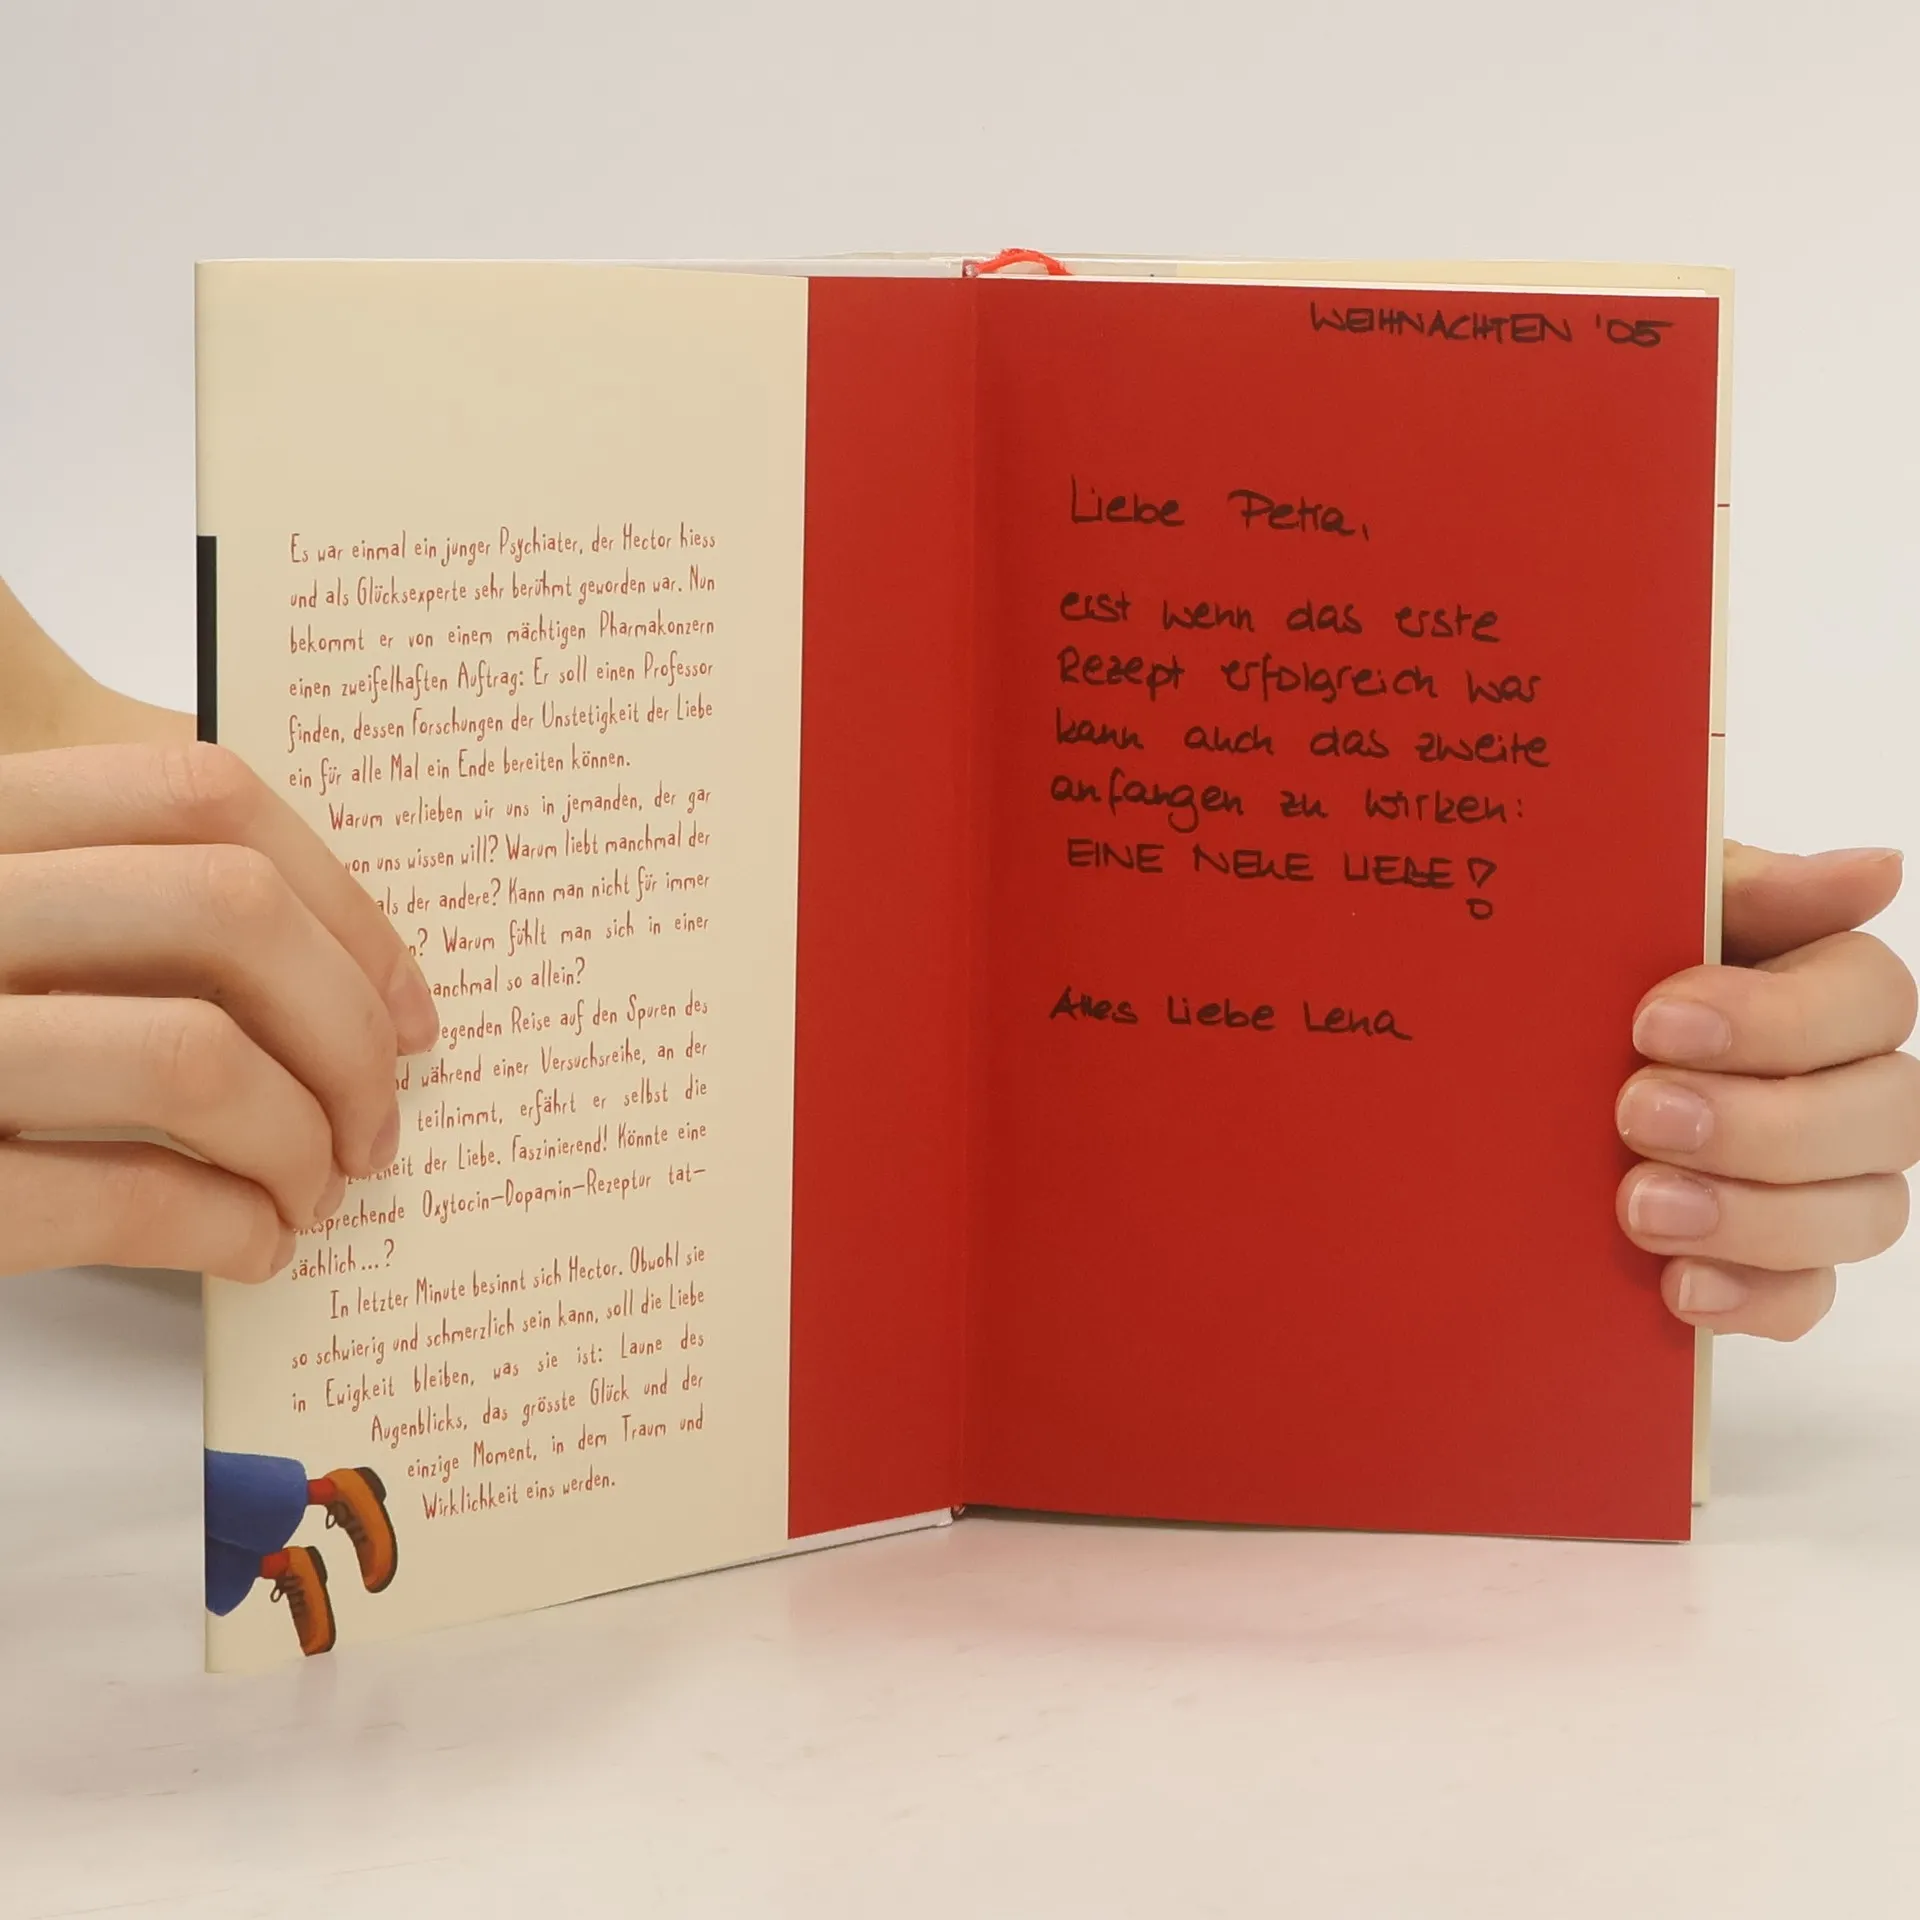 Es war einmal ein junger Psychiater, der Hector hiess
und als Glücksexperte sehr berühmt geworden war. Nun
bekommt er von einem mächtigen Pharmakonzern
einen zweifelhaften Auftrag: Er soll einen Professor
finden, dessen Forschungen der Unstetigkeit der Liebe
ein für alle Mal ein Ende bereiten können.
Warum verlieben wir uns in jemanden, der gar
von uns wissen will? Warum liebt manchmal der
als der andere? Kann man nicht für immer
? Warum fühlt man sich in einer
manchmal so allein?
egenden Reise auf den Spuren des
während einer Versuchsreihe, an der
teilnimmt, erfährt er selbst die
heit der Liebe. Faszinierend! Könnte eine
entsprechende Oxytocin-Dopamin-Rezeptur tat-
sächlich ...?
In letzter Minute besinnt sich Hector. Obwohl sie
so schwierig und schmerzlich sein kann, soll die Liebe
in Ewigkeit bleiben, was sie ist: Laune des
Augenblicks, das grösste Glück und der
einzige Moment, in dem Traum und
Wirklichkeit eins werden.
WEIHNACHTEN '05
Liebe Petra,
erst wenn das erste
Rezept erfolgreich war
kann auch das zweite
anfangen zu wirken:
EINE NEUE LIEBE!
Alles Liebe Lena